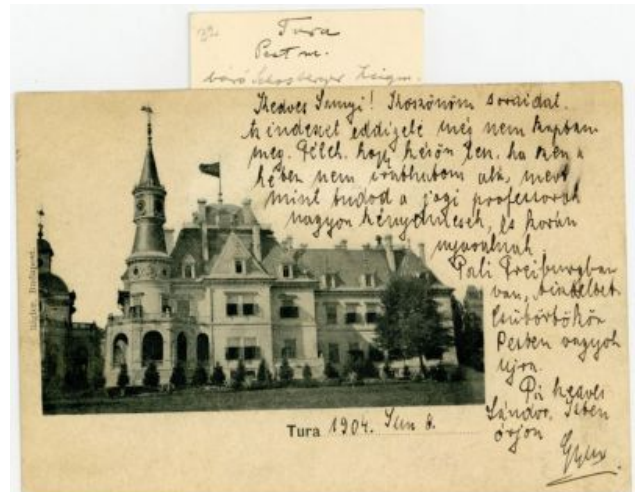 32
Tura
Pest m.
báró Schosberger Zsigm.
Kedves Sanyi! Köszönöm soraidat.
Az indexet eddigelé még nem kaptam
meg. Félek, hogy késön lesz, ha ezen a
héten nem irathatom alá, mert
mint tudod a jogi professorok
nagyon kényelmesek, és korán
nyaralnak.
Pali Freiburgban
van,
Csütörtökön
Pesten vagyok
ujra.
Pá kedves
Sándor, Isten
óvjon
Rigler, Budapest
Tura 1904. Jun 8.